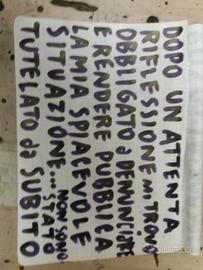 DOPO UN ATTENTA
RIFLESSIONE mi TROVO
OBBLIGATO a DENUNCIARE
E RENDERE PUBBLICA
LA MIA SPIACEVOLE
SITUAZIONE... NON SONO STATO
TUTELATO da SUBITO